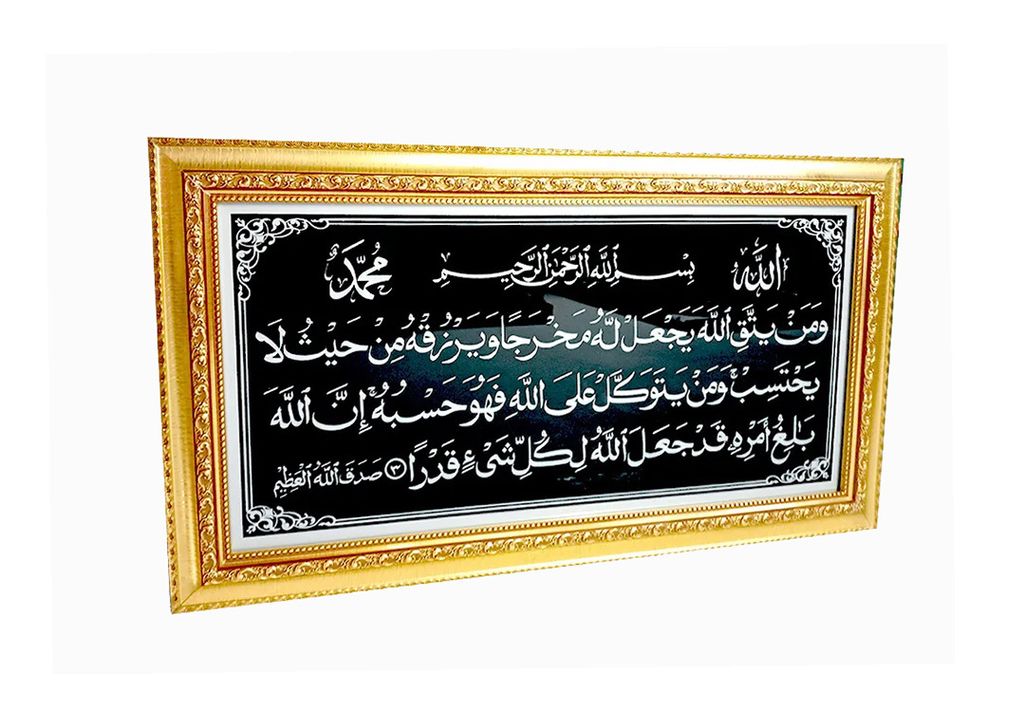 الله بِسْمِ ٱللَّهِ ٱلرَّحْمَٰنِ ٱلرَّحِيمِ مُحَمَّد
وَمَنْ يَتَّقِ ٱللَّهَ يَجْعَلْ لَهُ مَخْرَجًا وَيَرْزُقْهُ مِنْ حَيْثُ لَا
يَحْتَسِبُ ۚ وَمَنْ يَتَوَكَّلْ عَلَى اللَّهِ فَهُوَ حَسْبُهُ ۚ إِنَّ ٱللَّهَ
بَٰلِغُ أَمْرِهِ ۚ قَدْ جَعَلَ ٱللَّهُ لِكُلِّ شَىْءٍ قَدْرًا ٣ صَدَقَ ٱللَّهُ ٱلْعَظِيمُ